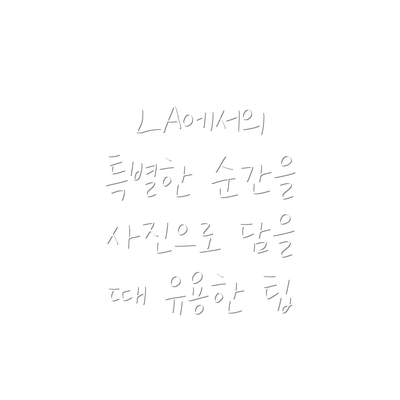 LA에서의
특별한 순간을
사진으로 담을
때 유용한 팁